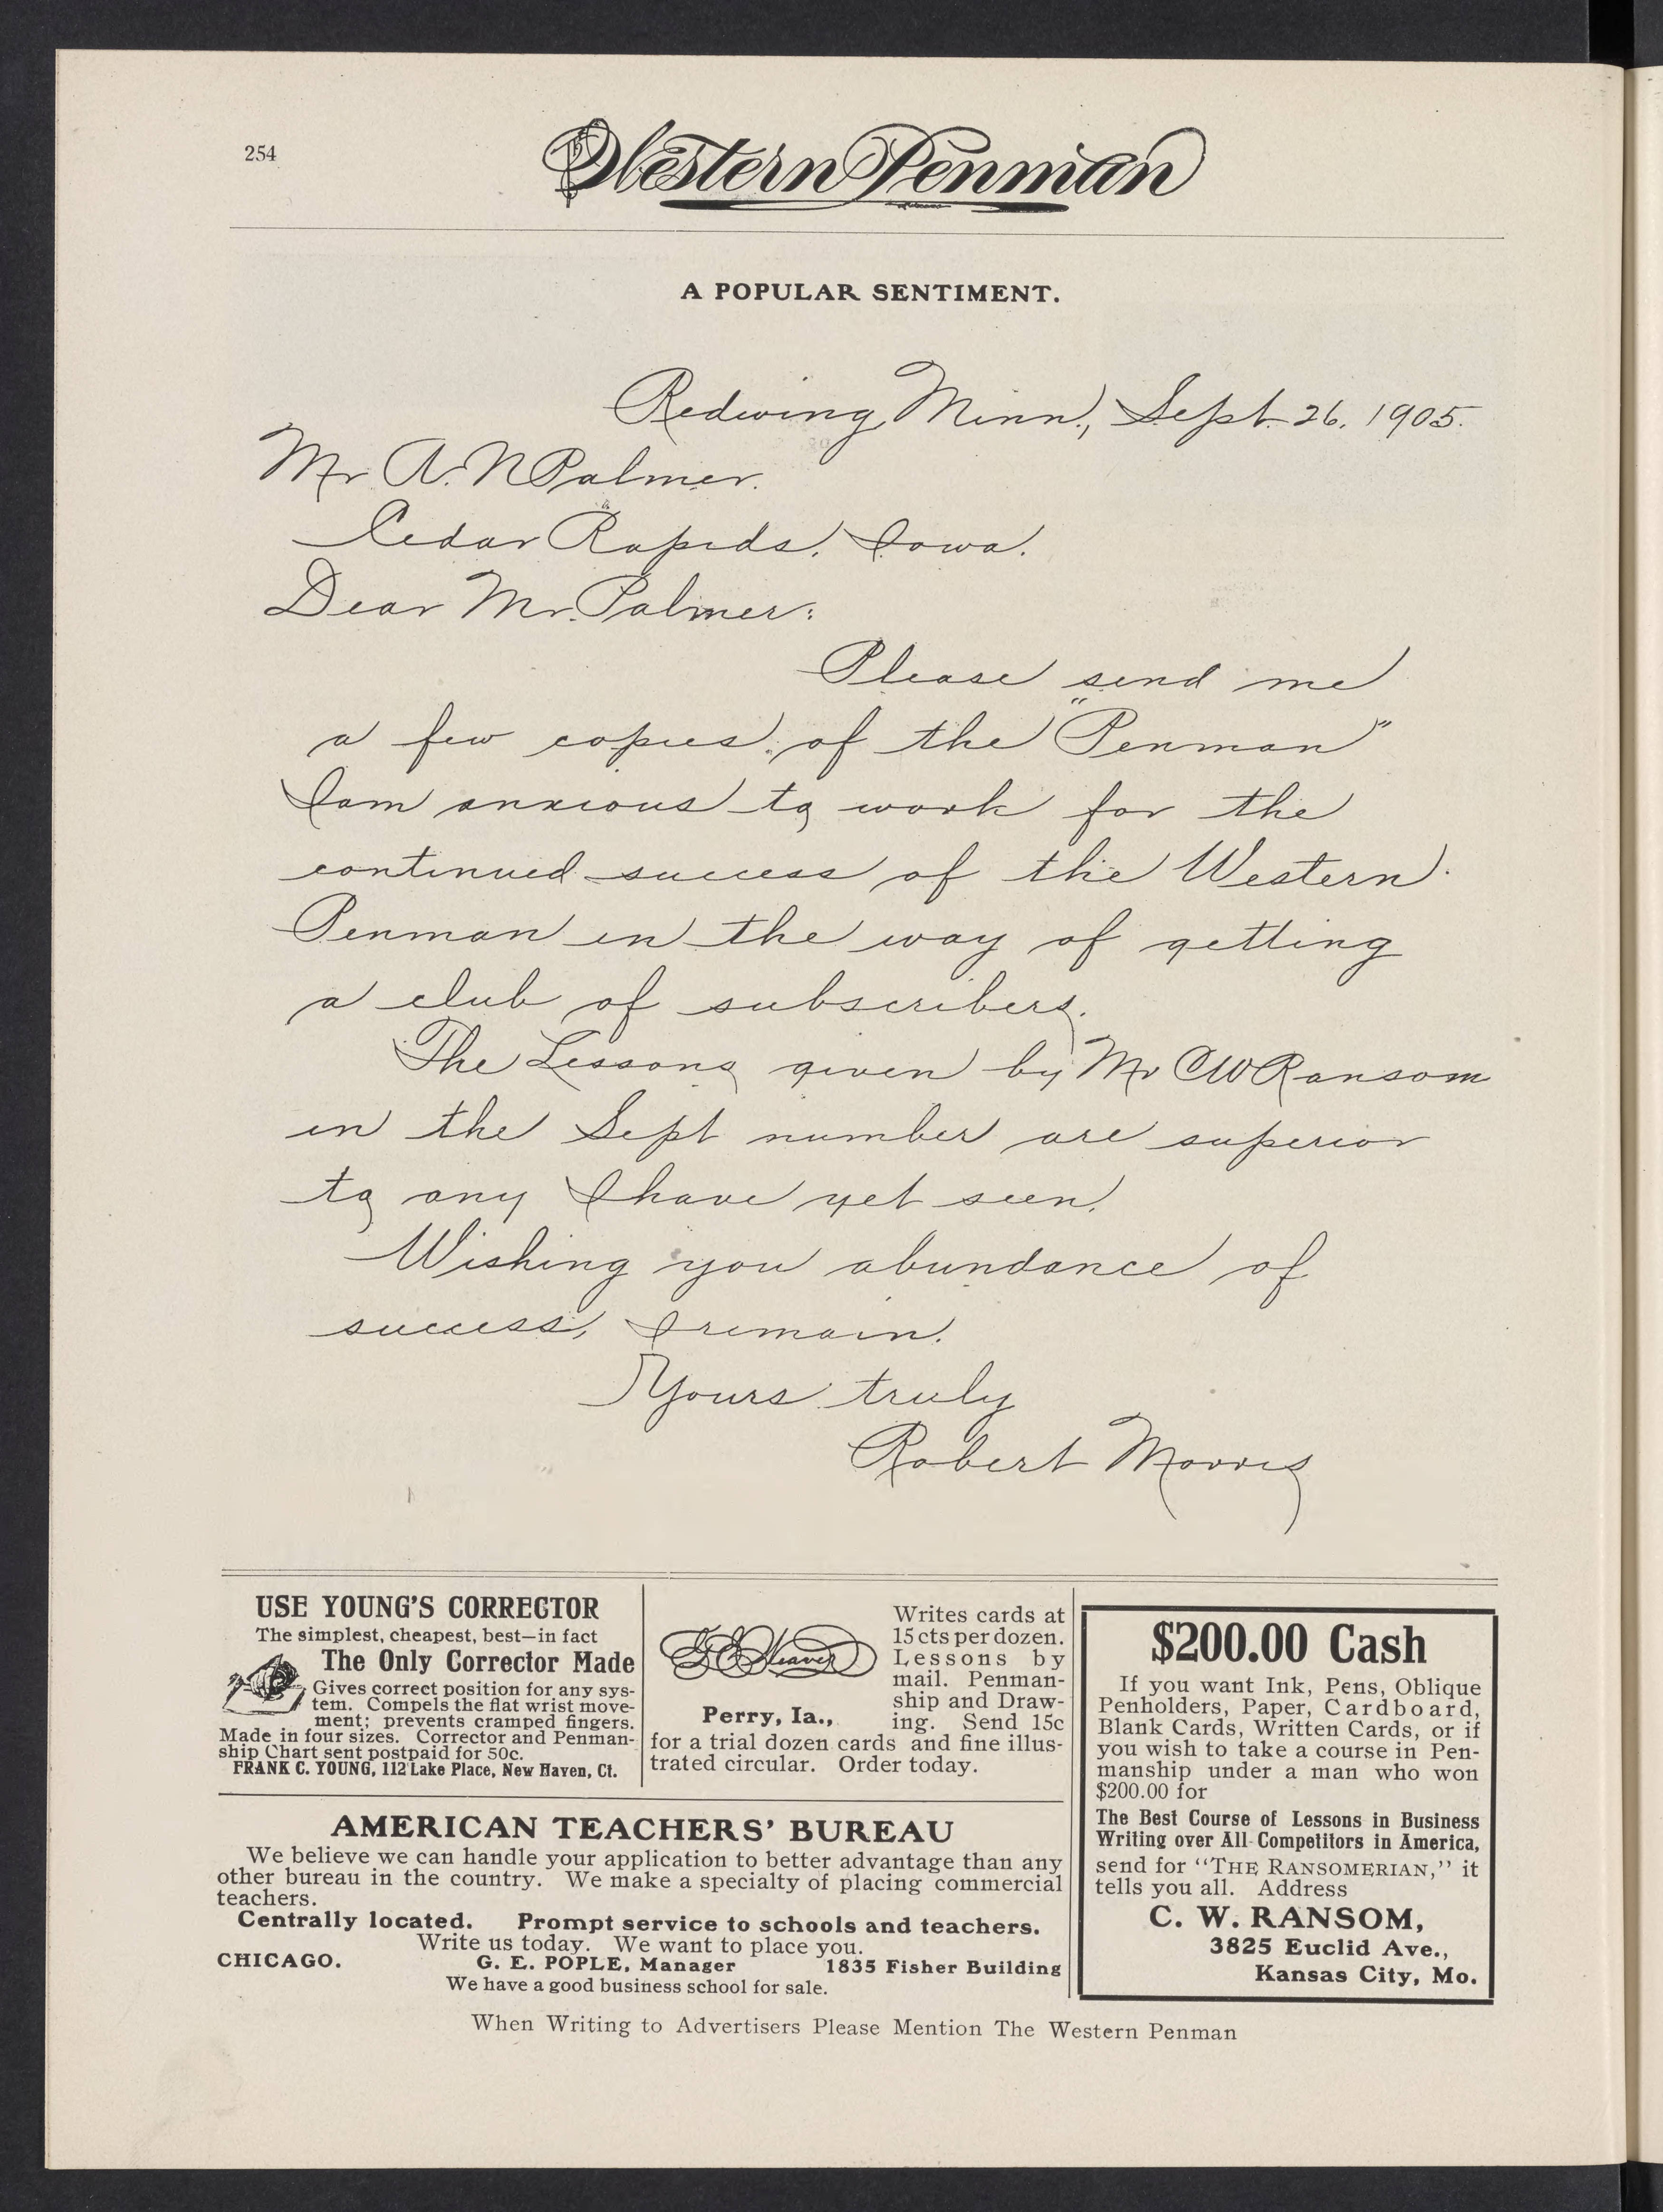 254
Western Penman
A POPULAR SENTIMENT.
Redwing, Minn., Sept. 26. 1905.
Mr. A. N Palmer.
Cedar Rapids, Iowa.
Dear Mr. Palmer:
Please send me
a few copies of the "Penman"
I am anxious to work for the
continued success of the Western
Penman in the way of getting
a club of subscribers.
The Lessons given by Mr C W Ransom
in the Sept number are superior
to any I have yet seen.
Wishing you abundance of
success, I remain.
Yours truly
Robert Morris
USE YOUNG'S CORRECTOR
The simplest, cheapest, best—in fact
The Only Corrector Made
Gives correct position for any sys-
tem. Compels the flat wrist move-
ment; prevents cramped fingers.
Made in four sizes. Corrector and Penman-
ship Chart sent postpaid for 50c.
FRANK C. YOUNG, 112 Lake Place, New Haven, Ct.
Writes cards at
15 cts per dozen.
Lessons by
mail. Penman-
ship and Draw-
Perry, Ia., ing. Send 15c
for a trial dozen cards and fine illus-
trated circular. Order today.
AMERICAN TEACHERS' BUREAU
We believe we can handle your application to better advantage than any
other bureau in the country. We make a specialty of placing commercial
teachers.
Centrally located. Prompt service to schools and teachers.
Write us today. We want to place you.
CHICAGO. G. E. POPLE, Manager 1835 Fisher Building
We have a good business school for sale.
$200.00 Cash
If you want Ink, Pens, Oblique
Penholders, Paper, Cardboard,
Blank Cards, Written Cards, or if
you wish to take a course in Pen-
manship under a man who won
$200.00 for
The Best Course of Lessons in Business
Writing over All Competitors in America,
send for "THE RANSOMERIAN," it
tells you all. Address
C. W. RANSOM,
3825 Euclid Ave.,
Kansas City, Mo.
When Writing to Advertisers Please Mention The Western Penman